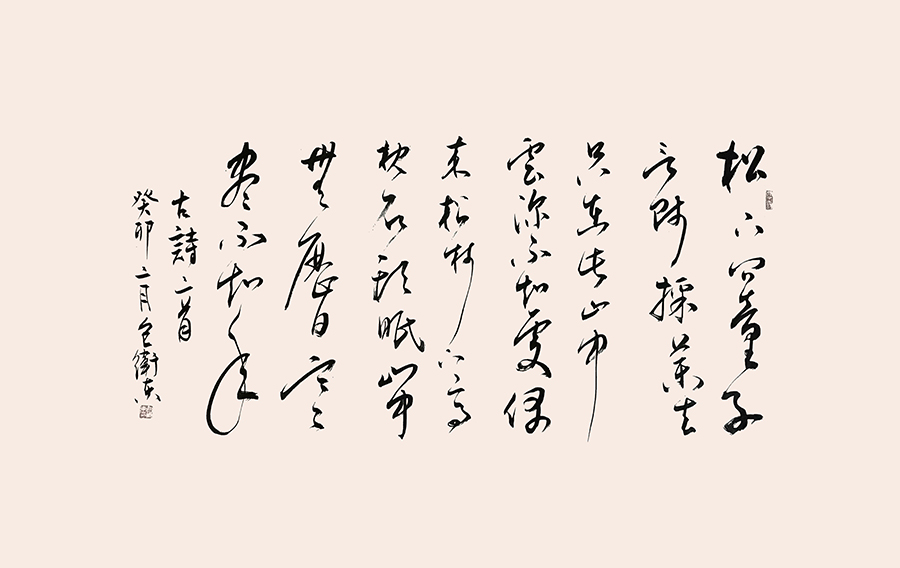 松下問童子
言師採藥去
只在此山中
雲深不知處偶
來松樹下高
枕石頭眠山中
無曆日寒
盡不知年
古詩二首
癸卯二月包衛东